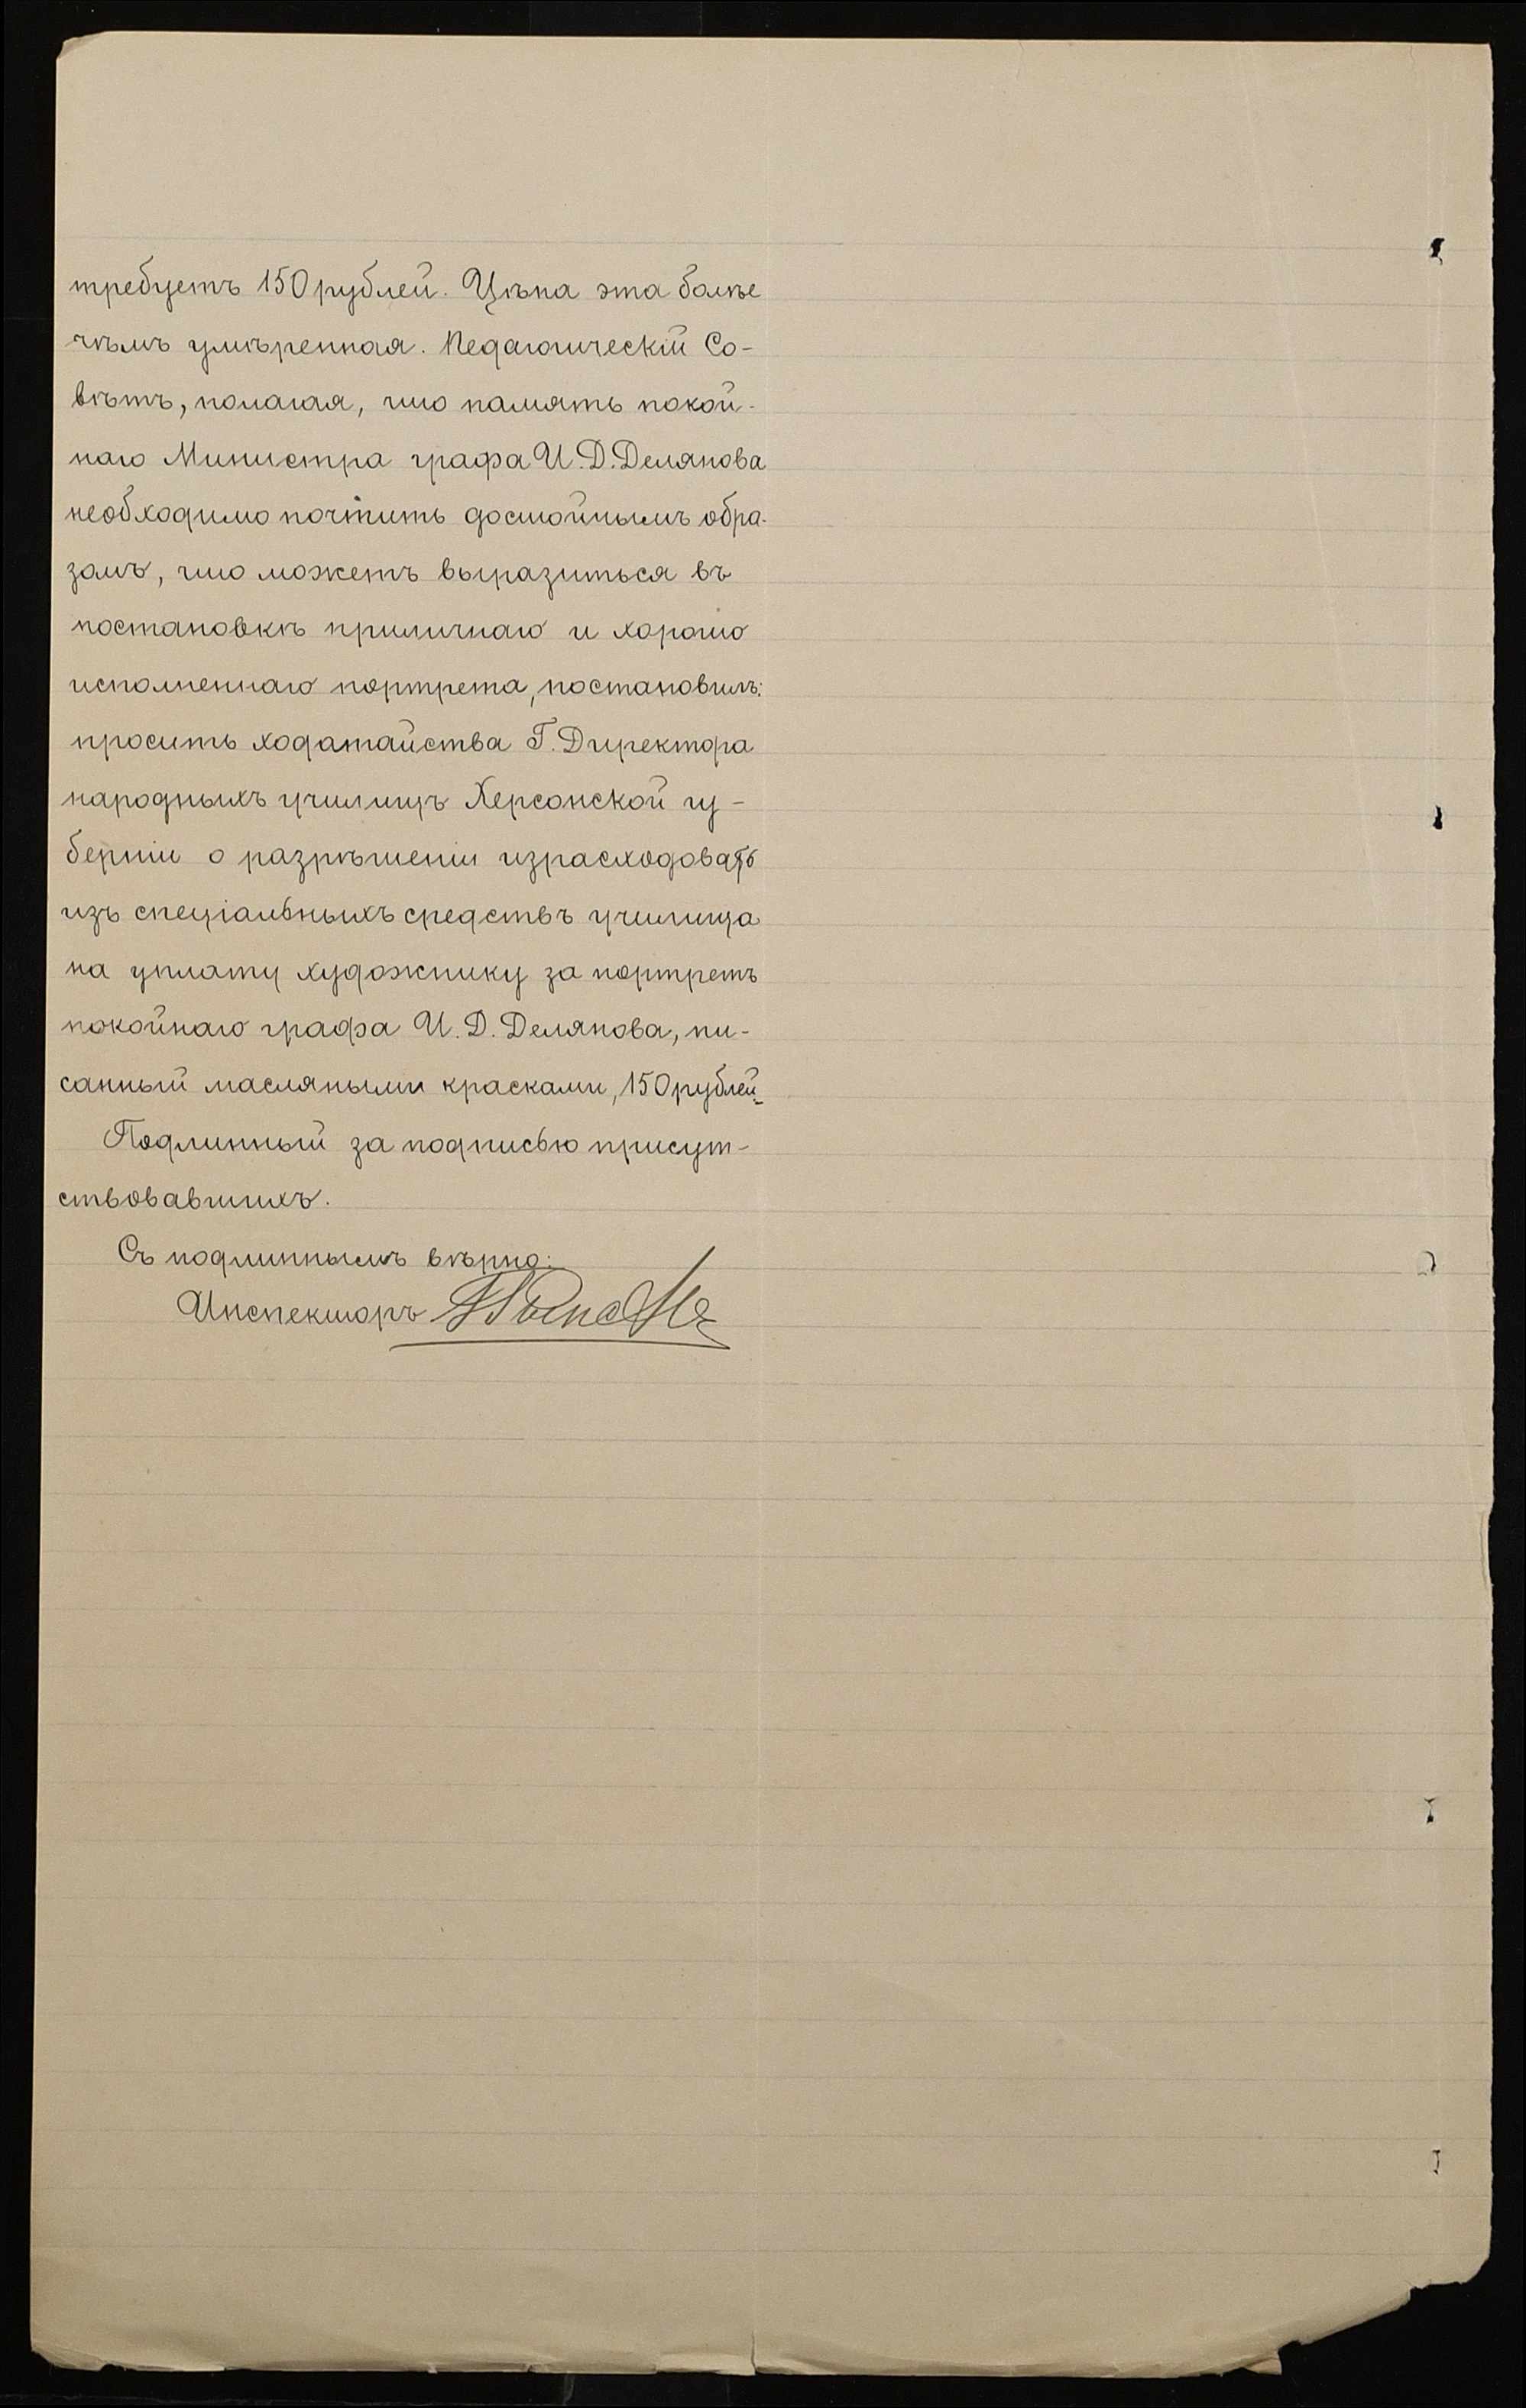 требуетъ 150 рублей. Цѣна эта болѣе
чѣмъ умѣренная. Педагогическій Со-
вѣтъ, полагая, что память покой-
наго Министра графа И. Д. Делянова
необходимо почтить достойнымъ обра-
зомъ, что можетъ выразиться въ
постановкѣ приличнаго и хорошо
исполненнаго портрета, постановилъ:
просить ходатайства Г. Директора
народныхъ училищъ Херсонской гу-
берніи о разрѣшеніи израсходовать
изъ спеціальныхъ средствъ училища
на уплату художнику за портретъ
покойнаго графа И. Д. Делянова, пи-
санный масляными красками, 150 рублей.
Подлинный за подписью присут-
ствовавшихъ.
Съ подлиннымъ вѣрно:
Инспекторъ